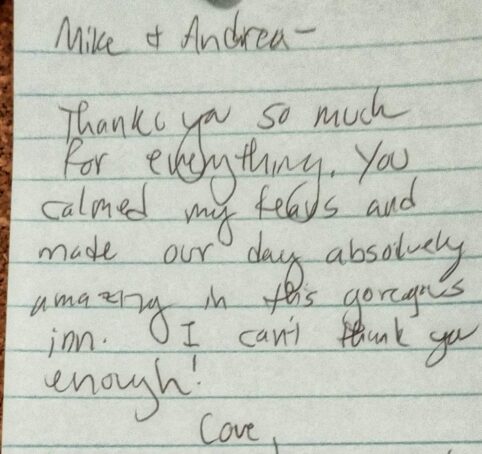 Mike & Andrea-
Thanks you so much
for everything. You
calmed my fears and
made our day absolutely
amazing in this gorgeous
inn. I can't thank you
enough!
Love,